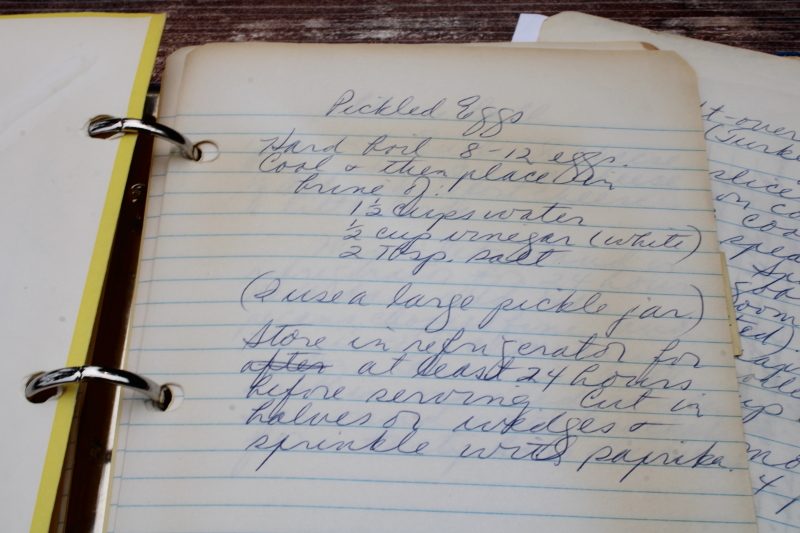 Pickled Eggs
Hard boil 8-12 eggs.
Cool & then place in
brine of:
1½ cups water
½ cup vinegar (white)
2 Tbsp. salt
(I use a large pickle jar)
Store in refrigerator for
after at least 24 hours
before serving. Cut in
halves or wedges &
sprinkle with paprika.